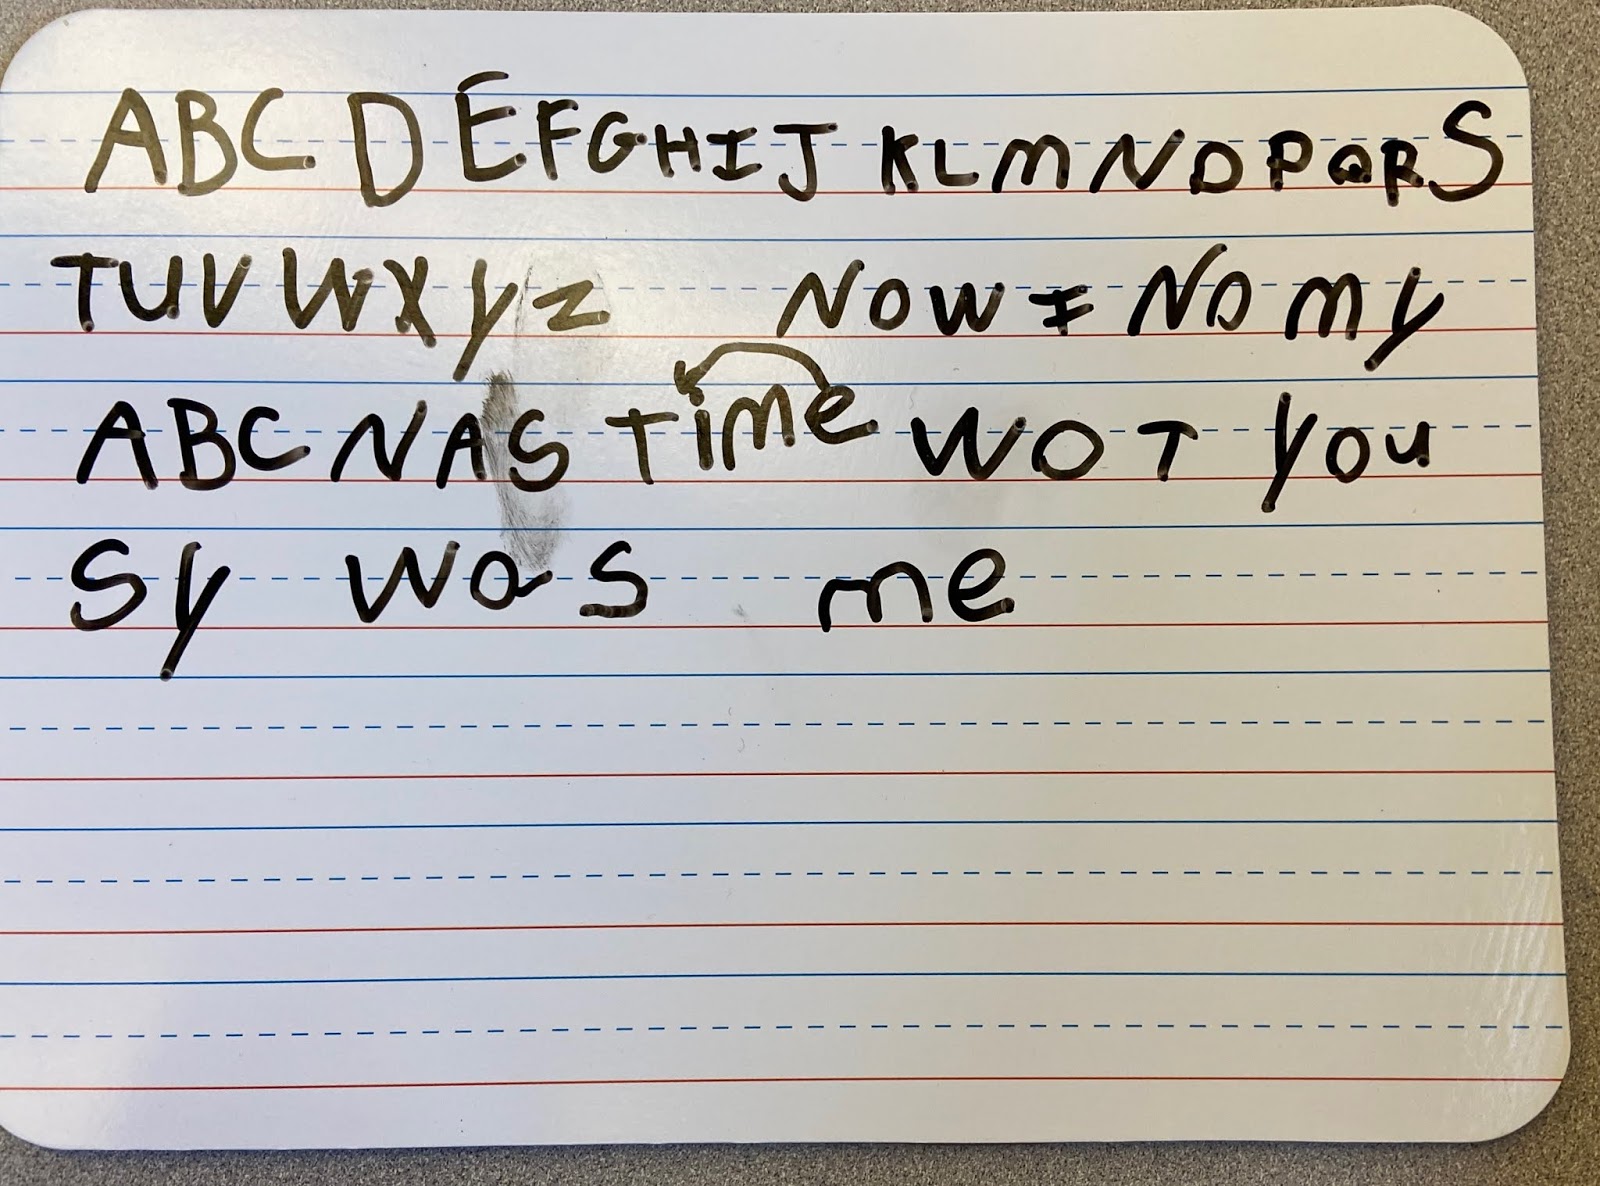 ABC D EFGHIJ KLMNOPQRS
TUVWXYZ NOW I NO MY
ABC NAS Time WOT you
Sy Was me